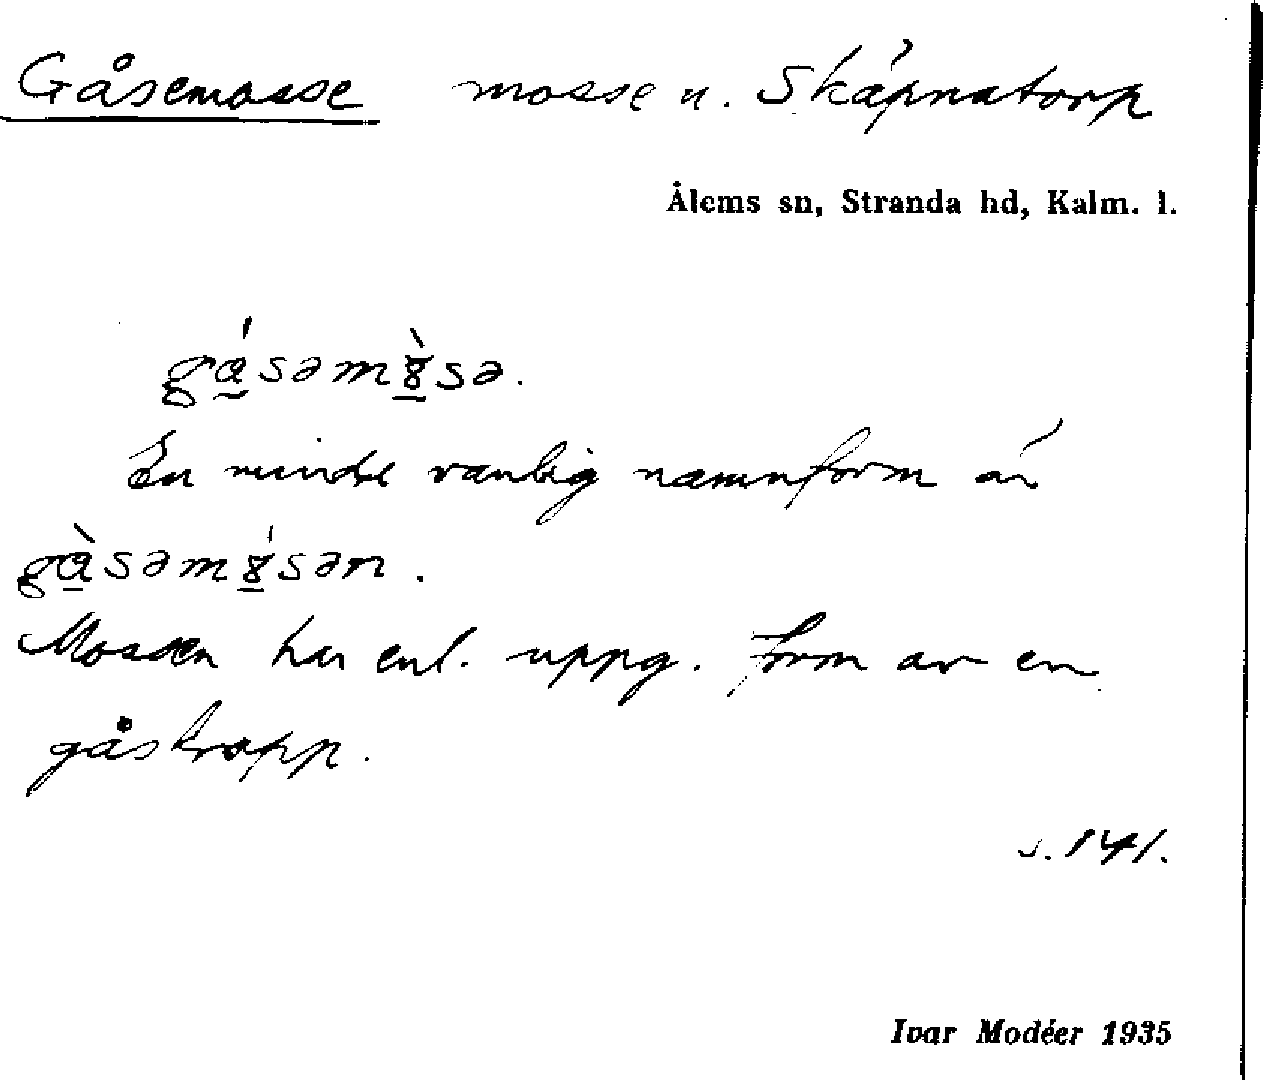 Gåsemosse mosse u. Skäpnatorp
Ålems sn, Stranda hd, Kalm. l.
gá̱səmò̱sə.
En mindre vanlig namnform än
gà̱səmó̱sən.
Mossen har enl. uppg. form av en
gåskropp.
s. 141.
Ivar Modéer 1935